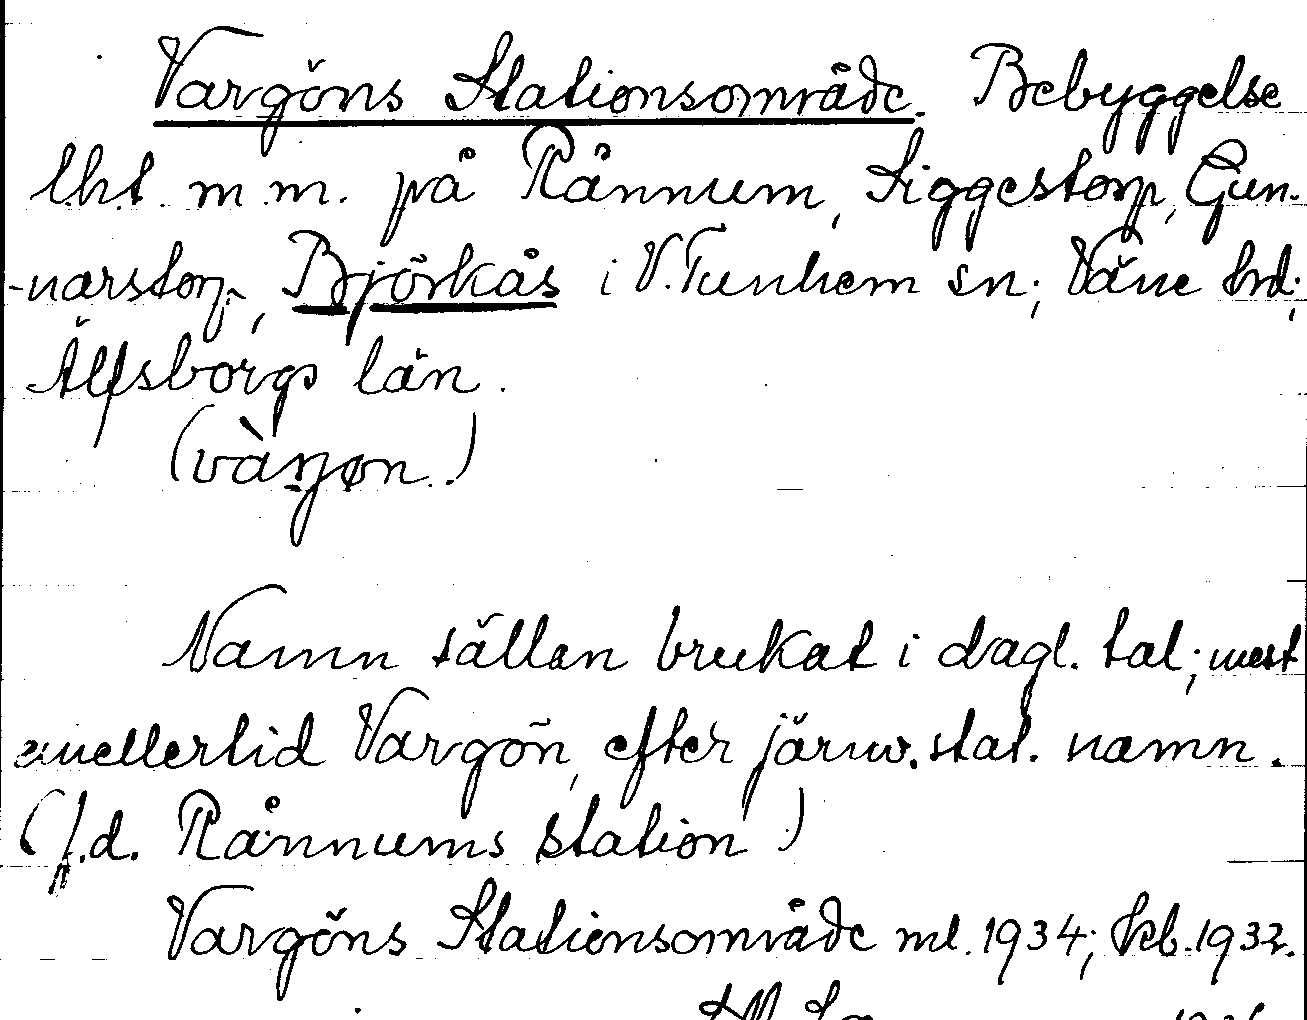 Vargöns Stationsområde. Bebyggelse
lht. m.m. på Rånnum, Siggestorp, Gun-
-narstorp, Björkås i V. Tunhem sn; Väne hd;
Älfsborgs län.
(vàrgøn.)
Namn sällan brukat i dagl. tal; mest
emellertid Vargön, efter järnv. stat. namn.
(f.d. Rånnums station)
Vargöns Stationsområde ml. 1934; kb. 1933.